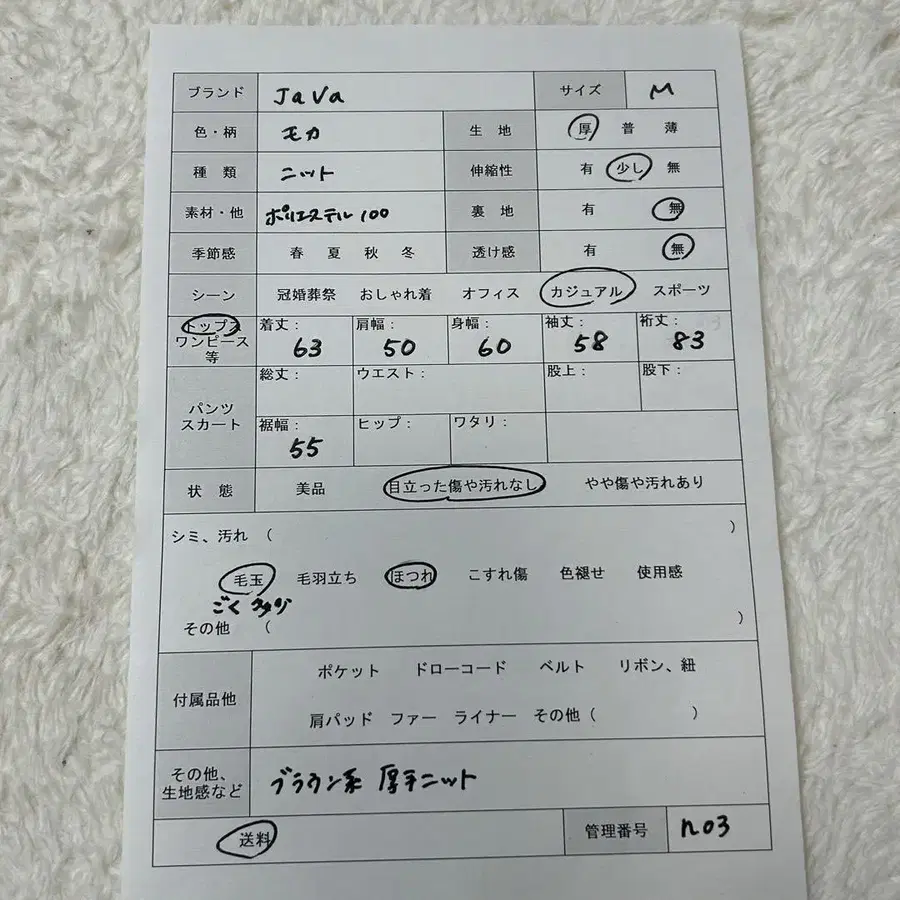 ブランド JaVa サイズ M
色・柄 モカ 生 地 厚 普 薄
種 類 ニット 伸縮性 有 少し 無
素材・他 ポリエステル 100 裏 地 有 無
季節感 春 夏 秋 冬 透け感 有 無
シーン 冠婚葬祭 おしゃれ着 オフィス カジュアル スポーツ
トップス ワンピース 等 着丈: 63 肩幅: 50 身幅: 60 袖丈: 58 裄丈: 83
パンツ スカート 総丈: ウエスト: 股上: 股下:
裾幅: 55 ヒップ: ワタリ:
状 態 美品 目立った傷や汚れなし やや傷や汚れあり
シミ、汚れ ( )
毛玉 毛羽立ち ほつれ こすれ傷 色褪せ 使用感
ごく
その他 ( )
付属品他 ポケット ドローコード ベルト リボン、紐
肩パッド ファー ライナー その他( )
その他、 生地感など ブラウン系 厚手ニット
送料 管理番号 n03